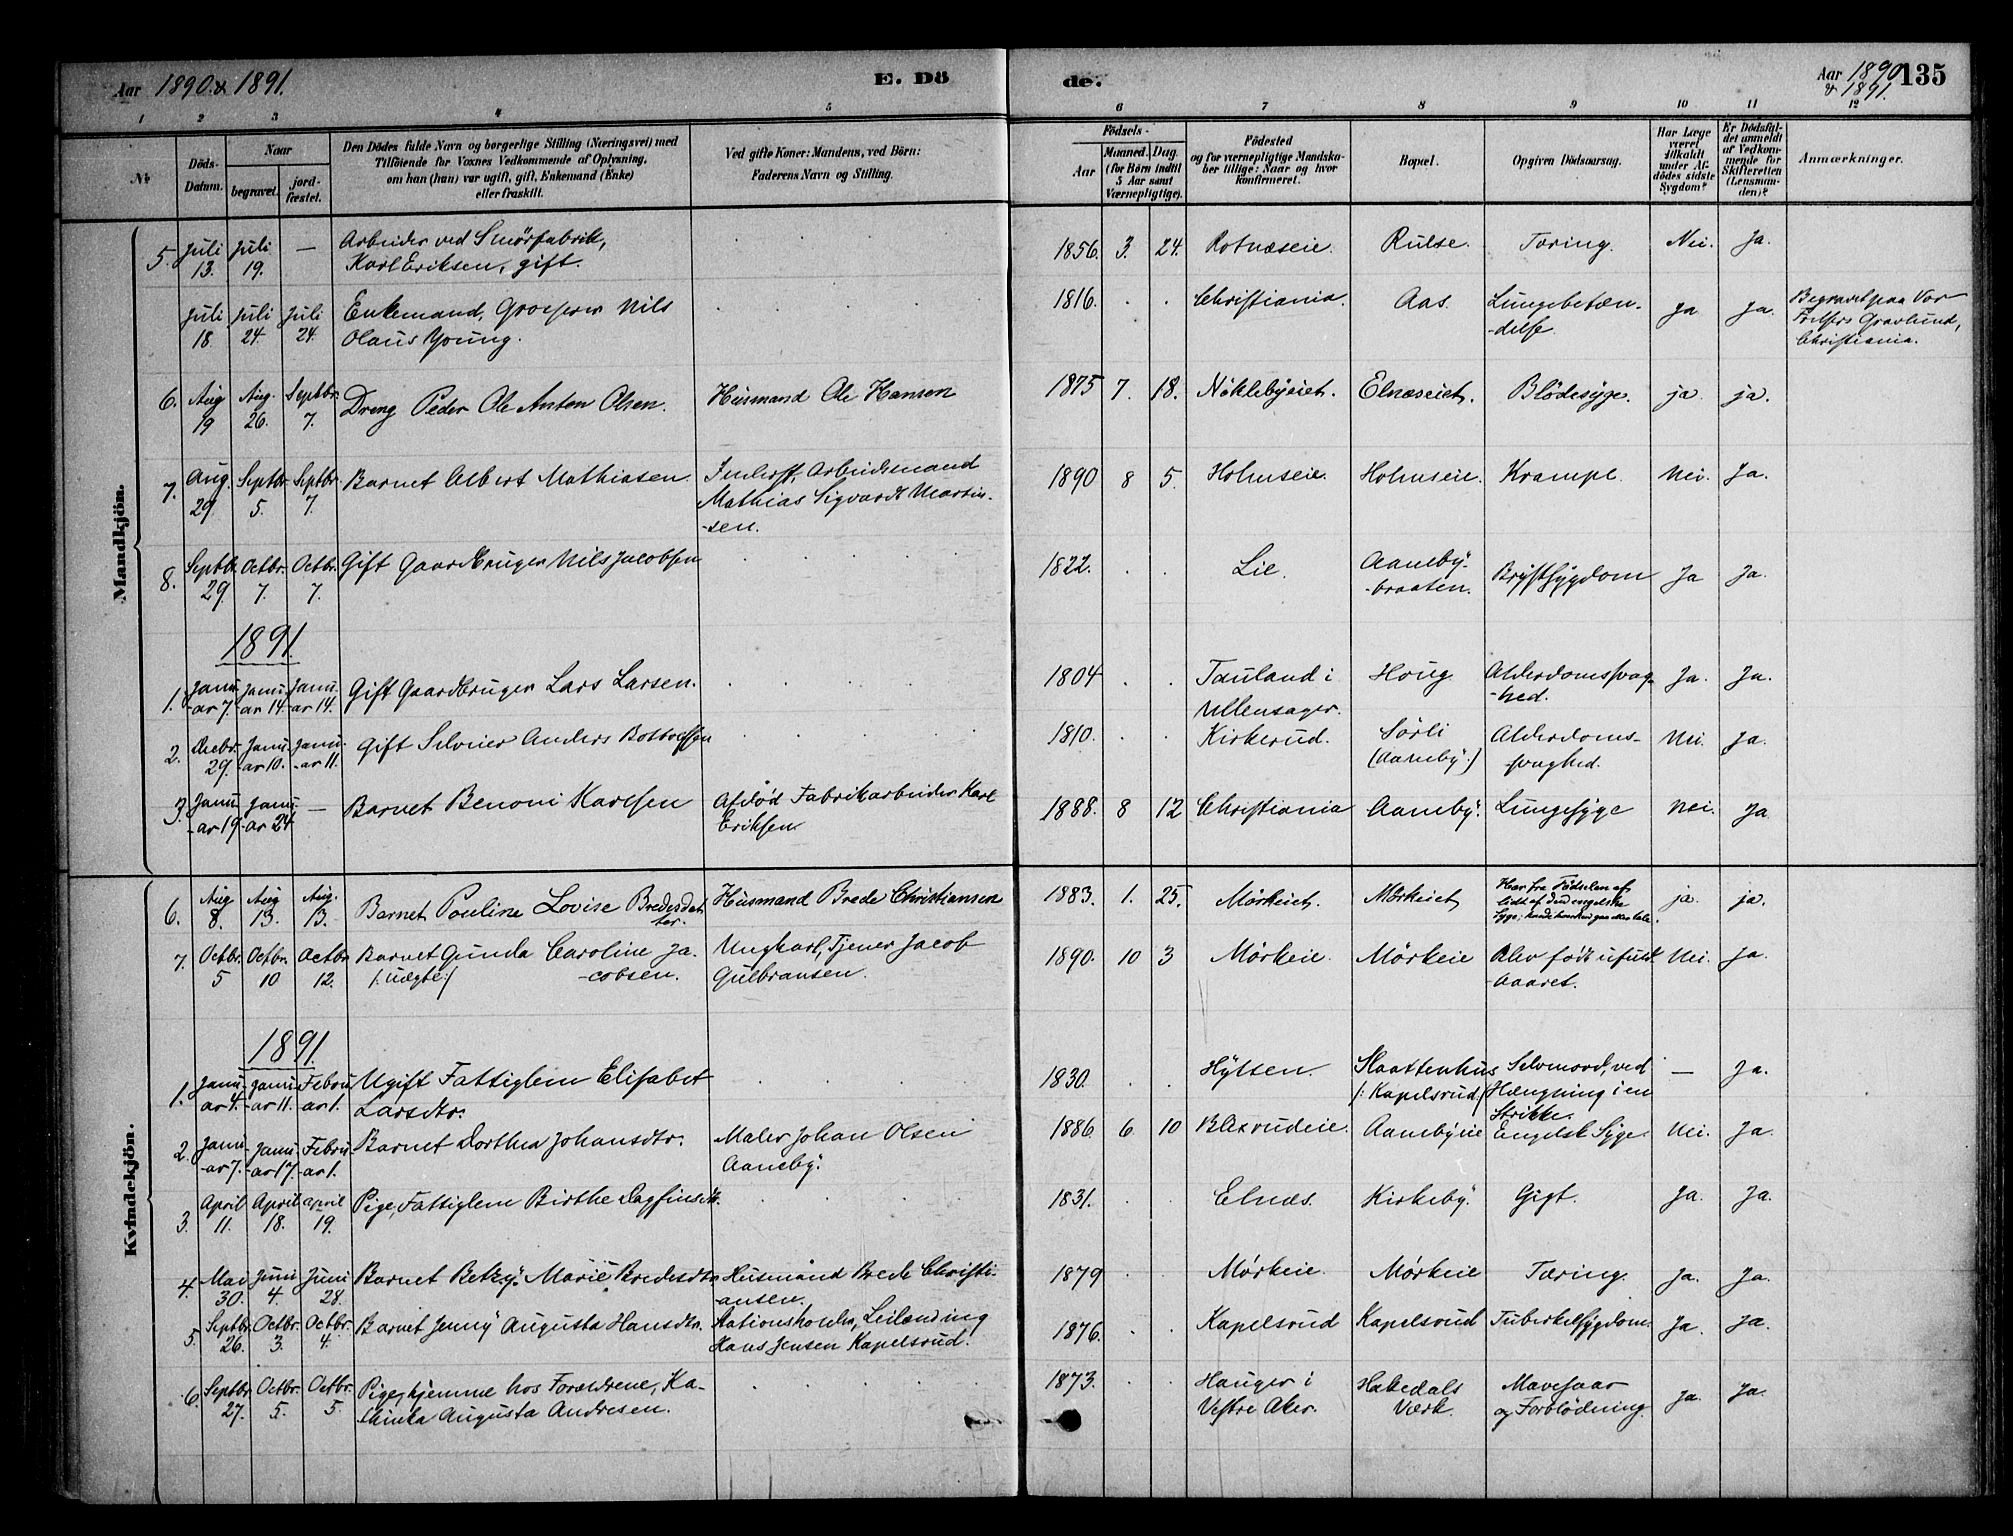 Aar 1890 & 1891.
E. Dö
de.
Aar 1890 & 1891.
135
1 2 3 4 5 6 7 8 9 10 11 12
№
Döds-Datum.
Naar
begravet.
jord-fæstet.
Den Dödes fulde Navn og borgerlige Stilling (Næringsvei) med
Tilföiende for Voxnes Vedkommende af Oplysning,
om han (hun) var ugift, gift, Enkemand (Enke)
eller fraskilt.
Ved gifte Koner: Mandens, ved Börn:
Faderens Navn og Stilling.
Födsels-
Aar
Maaned. Dag.
(for Börn indtil
5 Aar samt
Værnepligtige).
Födested
og for værnepligtige Mandska-
ber tillige: Naar og hvor
konfirmeret.
Bopæl.
Opgiven Dödsaarsag.
Har Læge
været
tilkaldt
under Af-
dödes sidste
Sygdom?
Er Dödsfal-
det anmeldt
af Vedkom-
mende for
Skifteretten
(Lensman-
den)?
Anmærkninger.
Mandkjön.
5. Juli 13. Juli 19. — Arbeider ved Smörfabrik, Karl Eriksen, gift. 1856. 3. 24. Rotnæseie. Rulse. Tæring. Nei. Ja.
Juli 18. Juli 24. Juli 24. Enkemand, Grosserer Nils Olaus Young. 1816. Christiania. Aas. Lungebetæn-delse. Ja Ja. Begravet paa Vor Frelsers Gravlund, Christiania.
6. Aug 19 Aug. 26. Septbr. 7. Dreng Peder Ole Anton Olsen. Husmand Ole Hansen 1875 7. 18. Nöklebyeiet. Elnæseiet. Blödesyge. ja ja.
7. Aug. 29. Septbr. 5. Septbr. 7. Barnet Albert Mathiasen. Inderst, Arbeidsmand Mathias Sigvardt Martin-sen. 1890 8 5. Holmseie. Holmseie. Krampe. Nei. Ja.
8. Septbr. 29. Octbr. 7. Octbr. 7. Gift Gaardbruger Nils Jacobsen 1822. Lie. Aaneby-braaten. Brystsygdom Ja Ja.
1891.
1. Janu-ar 7. Janu-ar 14. Janu-ar 14. Gift Gaardbruger Lars Larsen. 1804 Tauland i Ullensager. Houg Alderdomssvag-hed. Ja. Ja.
2. Decbr. 29. Janu-ar 10. Janu-ar 11. Gift Selveier Anders Bottolfsen 1810. Kirkerud. Sörli (Aaneby.) Alderdoms-svaghed. Nei. Ja.
3. Janu-ar 19. Janu-ar 24 — Barnet Benoni Karlsen Afdød Fabrikarbeider Karl Eriksen. 1888. 8 12 Christiania Aaneby. Lungesyge Nei. Ja
Kvindekjön.
6. Aug 8. Aug 13. Aug. 13. Barnet Pouline Lovise Bredesdat-ter. Husmand Brede Christiansen 1883. 1. 25. Mörkeiet. Mörkeiet Har fra Födselen af lidt af den engelske Syge; ja. ja.
7. Octbr. 5 Octbr. 10 Octbr. 12. Barnet Gunda Caroline Ja-cobsen. /: uægte :/ Ungkarl, Tjener Jacob Gulbransen. 1890. 10 3 Mörkeie. Mörkeie Blev födt ufuld-baaret. Nei. Ja.
1891.
1. Janu-ar 4. Janu-ar 11. Febru-ar 1. Ugift Fattiglem Elisabet Larsdtr. 1830. Hytten. Slaattenhus /: Kapelsrud :/ Selvmord, ved Hængning i en Strikke. — Ja.
2. Janu-ar 7. Janu-ar 17. Febru-ar 1. Barnet Dorthea Johansdtr. Maler Johan Olsen Aaneby. 1886 6 10 Blexrudeie. Aanebyeie Engelsk Syge. Nei. Ja.
3. April 11. April 18. April 19. Pige, Fattiglem Birthe Dagfinsdtr. 1831. Elnæs. Kirkeby. Gigt. Ja. Ja.
4. Mai 30. Juni 4. Juni 28. Barnet Betzy Marie Bredesdtr. Husmand Brede Christi-ansen. 1879 Mörkeie. Mörkeie Tæring. Ja. Ja.
5. Septbr. 26. Octbr. 3. Octbr. 4. Barnet Jenny Augusta Hansdtr. Stationsholder, Leilænding Hans Jensen Kapelsrud. 1876. Kapelsrud Kapelsrud Tuberkelsygdom. Ja. Ja.
6. Septbr. 27. Octbr. 5. Octbr. 5. Pige, hjemme hos Forældrene, Ka-thinka Augusta Andresen. 1873. Hauger i Vestre Aker. Hakedals Værk. Mavesaar og Forblödning. Ja. Ja.